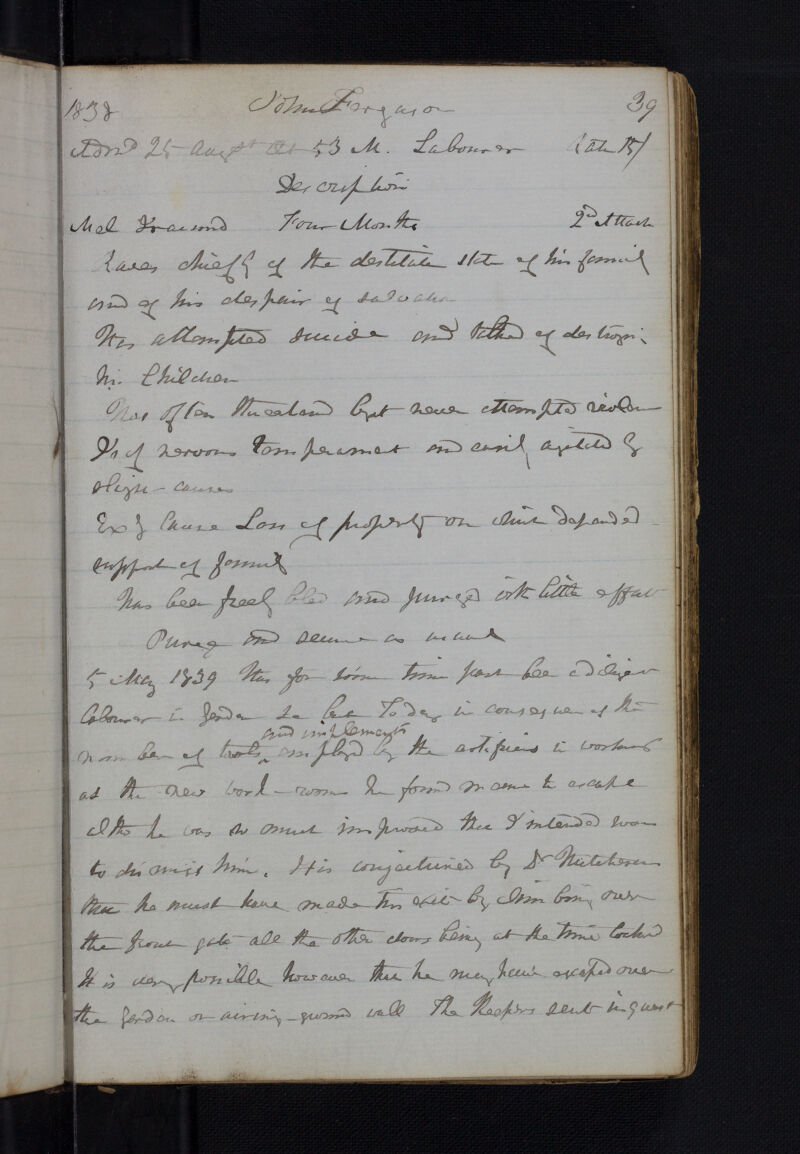 1838 John Ferguson 39
Admd 25 Augst Aet 53 M. Labourer Rate 15/
Description
Mel Four Months 2nd Attack
Raves chiefly of the destitute state of his family
and of his despair of salvation
Has attempted suicide and talked of destroying
his Children
Has often threatened but never attempted violence
Is of nervous temperament and easily agitated by
slight causes
Exg Cause Loss of property on which depended
support of family
Has been freely bled and purged with little effect
Purge and as usual
5 May 1839 Has for some time past been a diligent
labourer in garden &c but To day in consequence of the
number of tools and implements employed by the artificers in working
at the new work-rooms he found means to escape
altho he was so much improved that I intended soon
to dismiss him. It is conjectured by Dr Hutcheson
that he must have made his exit by climbing over
the front gate all the other doors being at the time locked
It is very possible however that he may have escaped over
the garden or airing-ground wall The Keepers sent in quest